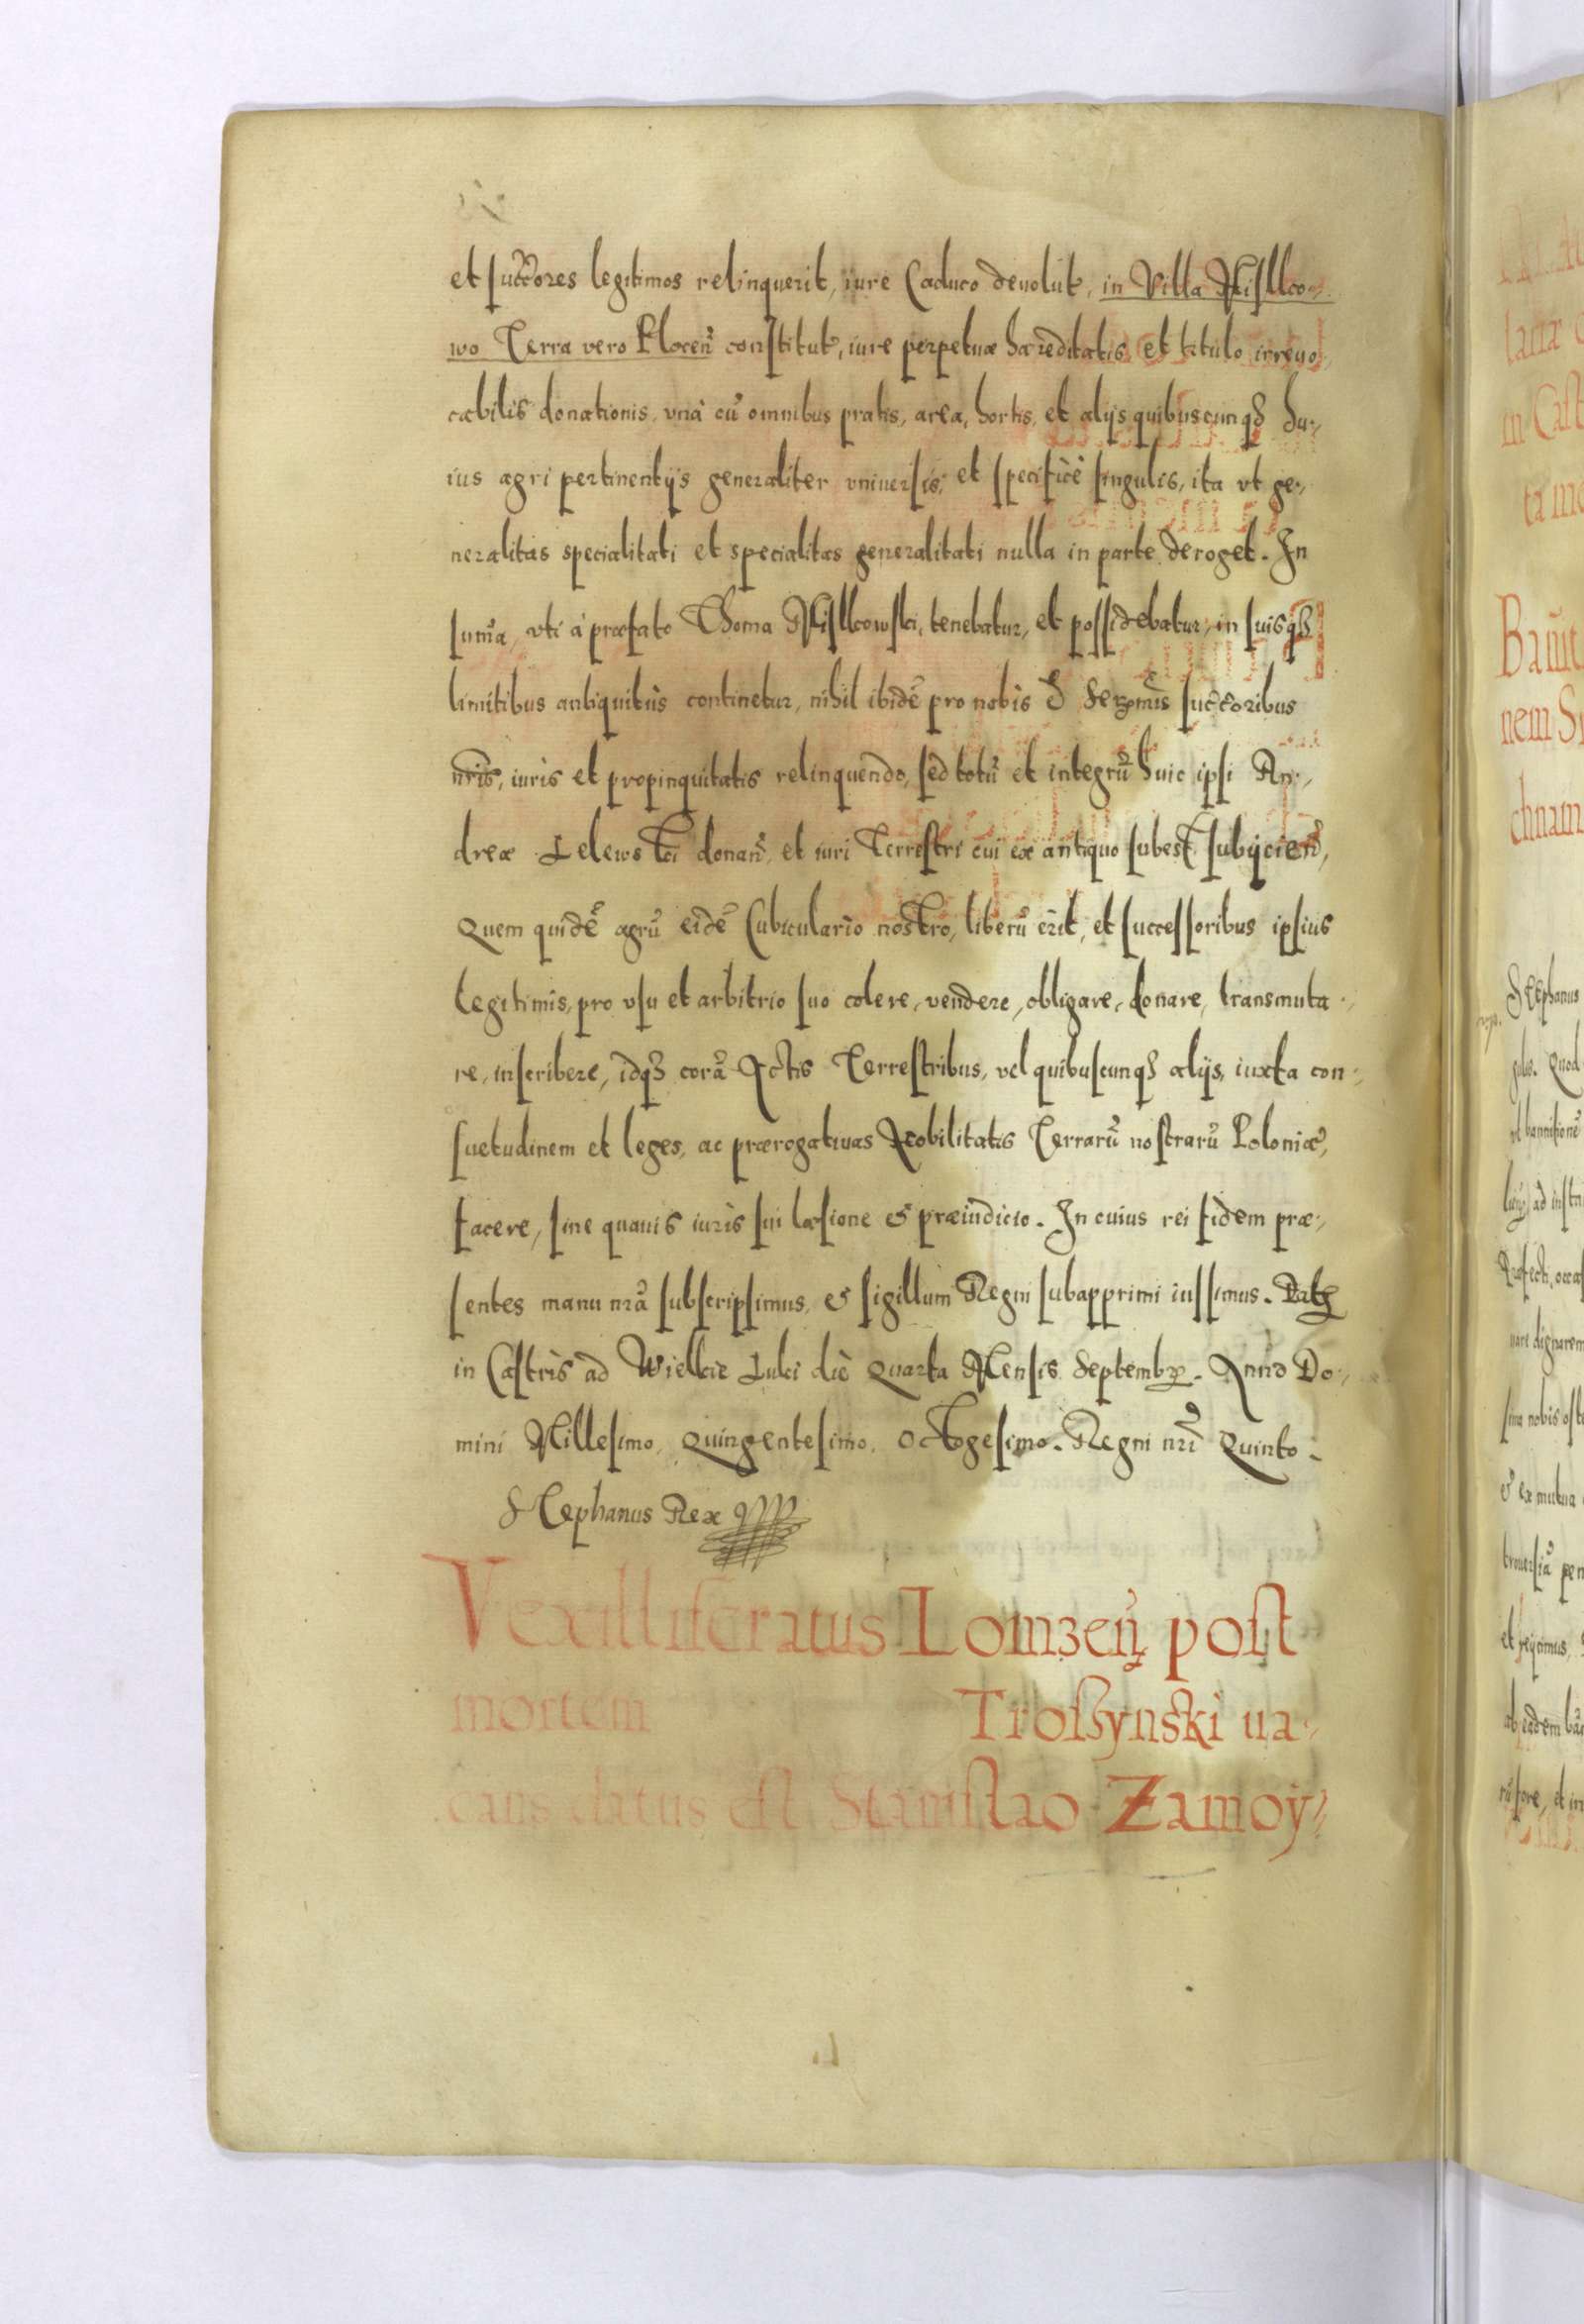 et succ̃ores legitimos relinquerit, iure Caduco deuolut̃, in Villa Misllco-
wo Terra vero Plocen̄ constitut̃, iure perpetuæ hæreditatis et titulo irreuo,
cabilis donationis, vnà cũ omnibus pratis, area, hortis, et alijs quibuscunqȝ hu-
ius agri pertinentijs generaliter vniuersis, et specificè singulis, ita vt ge-
neralitas specialitati et specialitas generalitati nulla in parte deroget. In
sum̃a, vti à præfato Thoma Misllcowski, tenebatur, et possidebatur, in suisqȝ
limitibus antiquitùs continetur, nihil ibidẽ pro nobis & Serenm̃is succ̃oribus
nr̃is, iuris et propinquitatis relinquendo, sed totũ et integrũ huic ipsi An-
dreæ Lelewski donan̄, et iuri Terrestri cui ex antiquo subest subijcien̄,
Quem quidẽ agrũ eidẽ Cubiculario nostro, liberũ erit, et successoribus ipsius
legitimis, pro vsu et arbitrio suo colere, vendere, obligare, donare, transmuta-
re, inscribere, idqȝ corã Actis Terrestribus, vel quibuscunqȝ alijs, iuxta con-
suetudinem et leges, ac prærogatiuas Nobilitatis Terrarũ nostrarũ Poloniæ,
facere, sine quauis iuris sui læsione & præiudicio. In cuius rei fidem præ-
sentes manu nr̃a subscripsimus, & sigillum Regni subapprimi iussimus. Datȝ
in Castris ad Wielkie Luki diè Quarta Mensis Septembꝝ. Anno Do-
mini Millesimo, Quingentesimo, Octogesimo. Regni nr̃i Quinto.
Stephanus Rex
Vexilliferatus Lomzen̄ post
mortem Trossynski ua-
cans datus est Stanislao Zamoy-